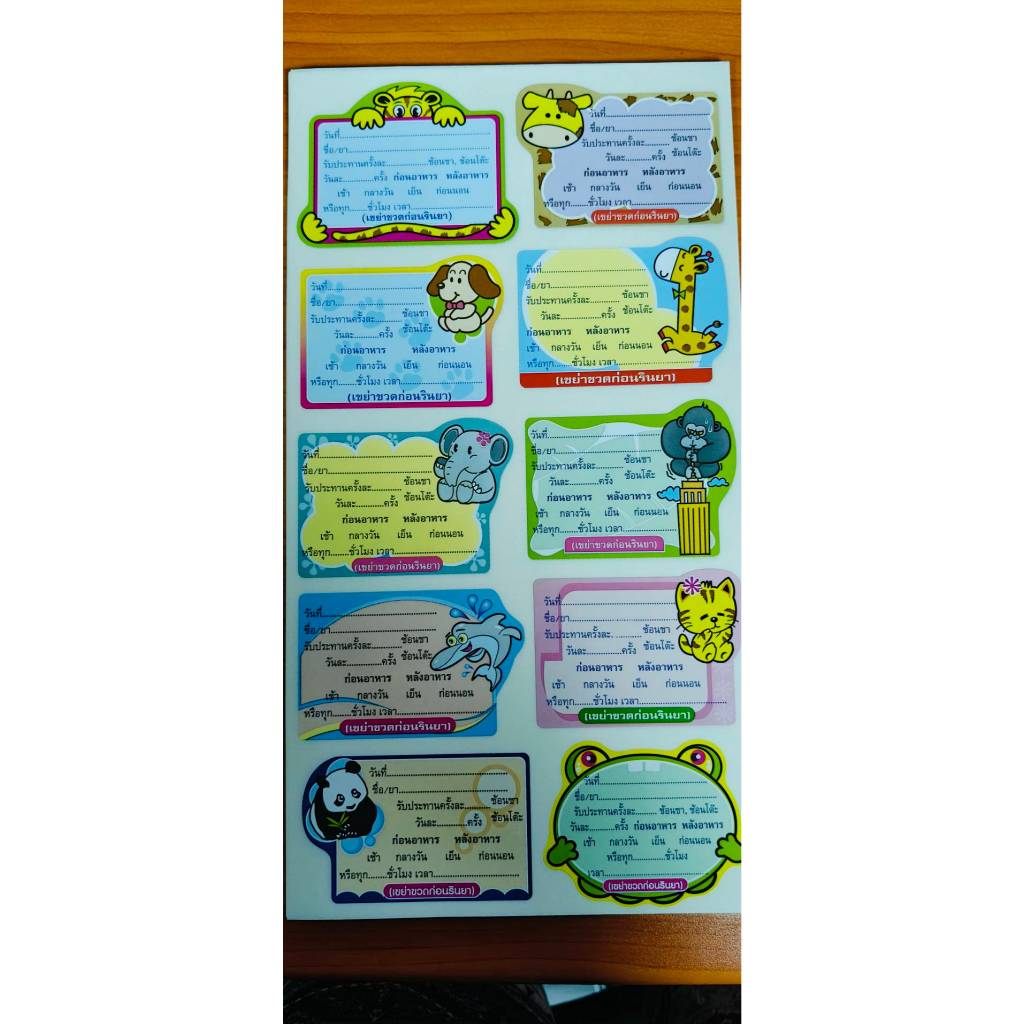 วันที่..........
ชื่อ/ยา..........
รับประทานครั้งละ..........ช้อนชา, ช้อนโต๊ะ
วันละ..........ครั้ง ก่อนอาหาร หลังอาหาร
เช้า กลางวัน เย็น ก่อนนอน
หรือทุก......ชั่วโมง เวลา..........
(เขย่าขวดก่อนรินยา)
วันที่..........
ชื่อ/ยา..........
รับประทานครั้งละ.......... ช้อนชา
วันละ..........ครั้ง ช้อนโต๊ะ
ก่อนอาหาร หลังอาหาร
เช้า กลางวัน เย็น ก่อนนอน
หรือทุก......ชั่วโมง เวลา..........
(เขย่าขวดก่อนรินยา)
วันที่..........
ชื่อ/ยา..........
รับประทานครั้งละ.......... ช้อนชา
วันละ..........ครั้ง ช้อนโต๊ะ
ก่อนอาหาร หลังอาหาร
เช้า กลางวัน เย็น ก่อนนอน
หรือทุก......ชั่วโมง เวลา..........
(เขย่าขวดก่อนรินยา)
วันที่..........
ชื่อ/ยา..........
รับประทานครั้งละ.......... ช้อนชา
วันละ..........ครั้ง ช้อนโต๊ะ
ก่อนอาหาร หลังอาหาร
เช้า กลางวัน เย็น ก่อนนอน
หรือทุก......ชั่วโมง เวลา..........
(เขย่าขวดก่อนรินยา)
วันที่..........
ชื่อ/ยา..........
รับประทานครั้งละ.......... ช้อนชา
วันละ..........ครั้ง ช้อนโต๊ะ
ก่อนอาหาร หลังอาหาร
เช้า กลางวัน เย็น ก่อนนอน
หรือทุก......ชั่วโมง เวลา..........
(เขย่าขวดก่อนรินยา)
วันที่..........
ชื่อ/ยา..........
รับประทานครั้งละ.......... ช้อนชา
วันละ..........ครั้ง ช้อนโต๊ะ
ก่อนอาหาร หลังอาหาร
เช้า กลางวัน เย็น ก่อนนอน
หรือทุก......ชั่วโมง เวลา..........
(เขย่าขวดก่อนรินยา)
วันที่..........
ชื่อ/ยา..........
รับประทานครั้งละ.......... ช้อนชา
วันละ..........ครั้ง ช้อนโต๊ะ
ก่อนอาหาร หลังอาหาร
เช้า กลางวัน เย็น ก่อนนอน
หรือทุก......ชั่วโมง เวลา..........
(เขย่าขวดก่อนรินยา)
วันที่..........
ชื่อ/ยา..........
รับประทานครั้งละ.......... ช้อนชา
วันละ..........ครั้ง ช้อนโต๊ะ
ก่อนอาหาร หลังอาหาร
เช้า กลางวัน เย็น ก่อนนอน
หรือทุก......ชั่วโมง เวลา..........
(เขย่าขวดก่อนรินยา)
วันที่..........
ชื่อ/ยา..........
รับประทานครั้งละ.......... ช้อนชา
วันละ..........ครั้ง ช้อนโต๊ะ
ก่อนอาหาร หลังอาหาร
เช้า กลางวัน เย็น ก่อนนอน
หรือทุก......ชั่วโมง เวลา..........
(เขย่าขวดก่อนรินยา)
วันที่..........
ชื่อ/ยา..........
รับประทานครั้งละ.......... ช้อนชา, ช้อนโต๊ะ
วันละ..........ครั้ง ก่อนอาหาร หลังอาหาร
เช้า กลางวัน เย็น ก่อนนอน
หรือทุก..........ชั่วโมง
เวลา..........
(เขย่าขวดก่อนรินยา)